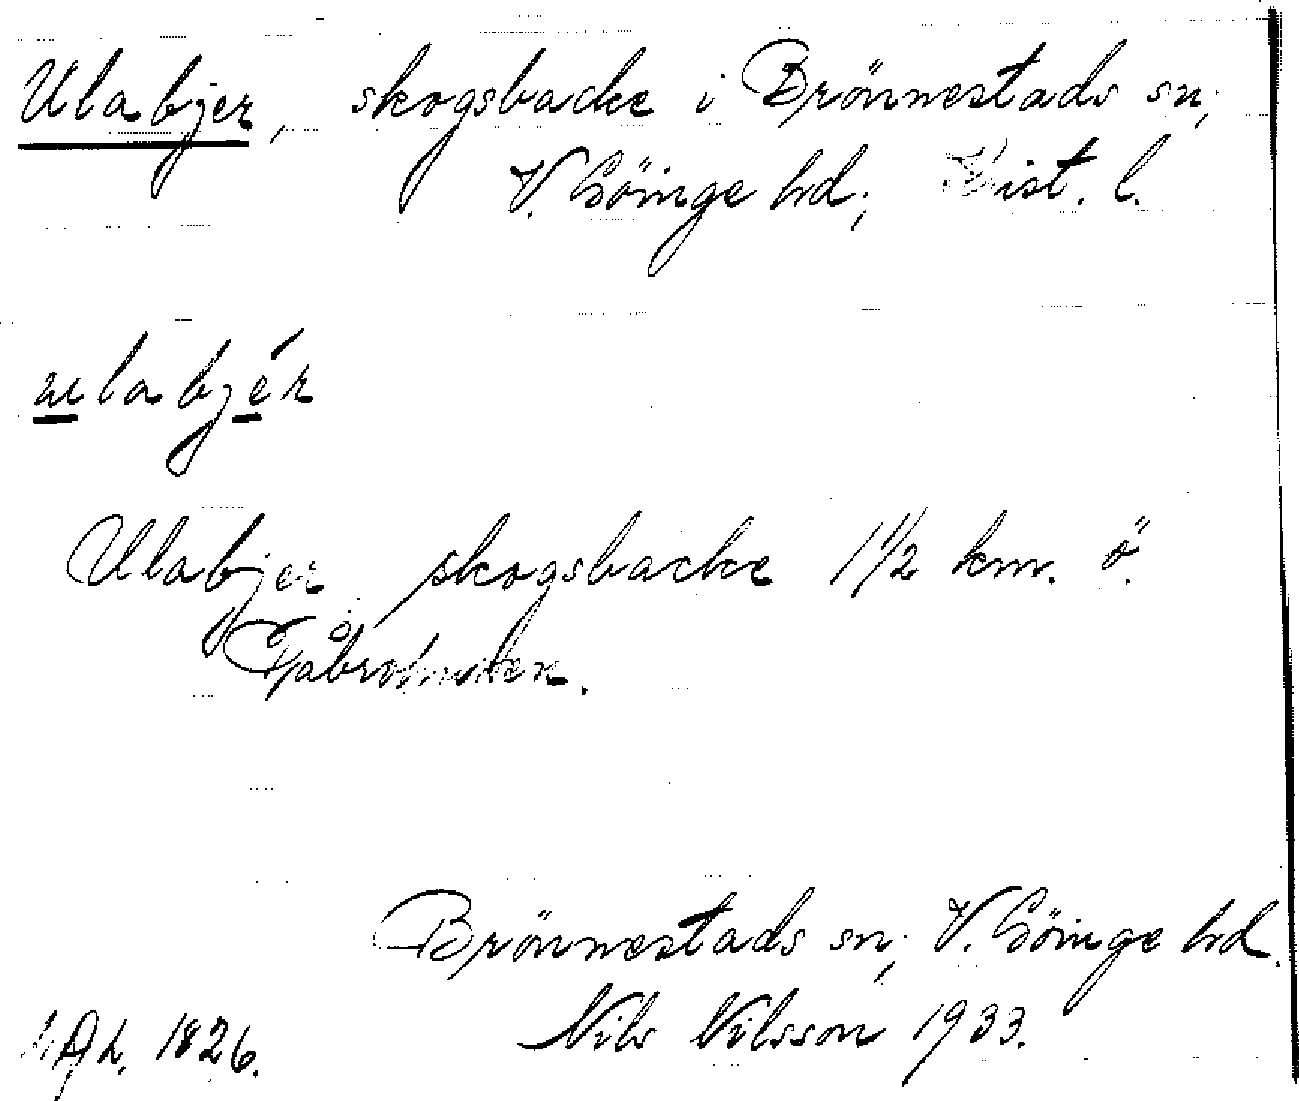 Ulabjer, skogsbacke i Brönnestads sn;
V. Göinge hd; Krist. l.
ulabjér
Ulabjer skogsbacke 1 1/2 km. ö.
Brönnestads sn; V. Göinge hd.
Nils Nilsson 1933.
1826.